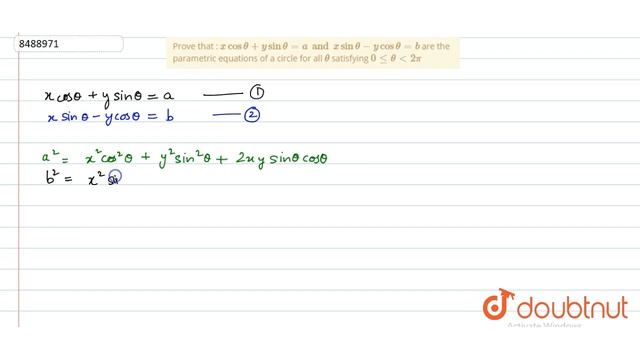 8488971
Prove that : x cos θ + y sin θ = a and x sin θ − y cos θ = b are the
parametric equations of a circle for all θ satisfying 0 ≤ θ < 2π
x cosθ + y sinθ = a —— ①
x sinθ − y cosθ = b —— ②
a² = x² cos²θ + y² sin²θ + 2xy sinθ cosθ
b² = x² si
doubtnut
Activate Windows